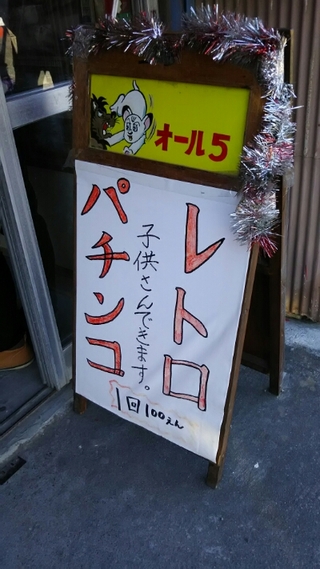 オール5
レトロ
子供さんできます。
パチンコ
1回100えん